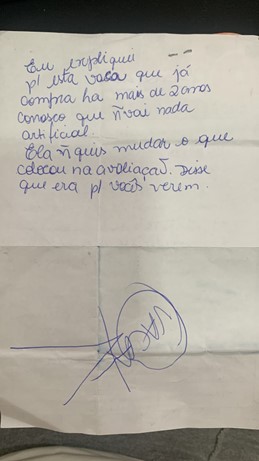 Eu expliquei
p/ esta vaca que já
compra ha mais de 2 anos
conosco que ñ vai nada
artificial.
Ela ñ quis mudar o que
colocou na avaliação. Disse
que era p/ vocês verem.
VACA